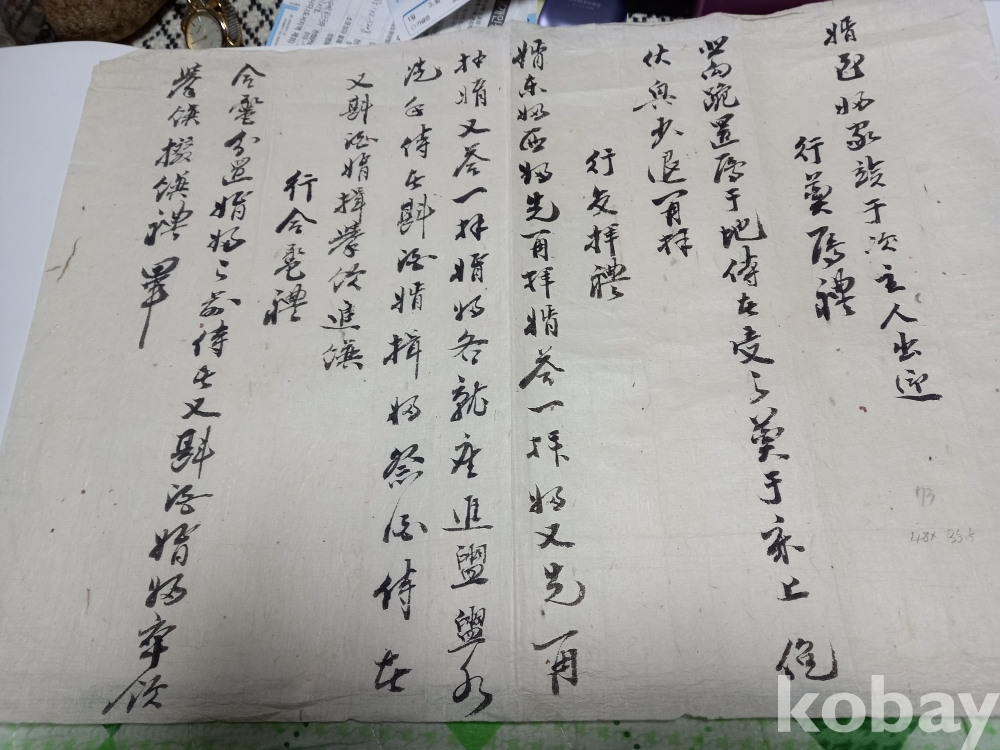 婿至婦家竢于次主人出迎
行奠鴈禮
北向跪置鴈于地侍者受之奠于床上俛
伏興少退再拜
行交拜禮
婿東婦西婦先再拜婿答一拜婦又先再
拜婿又答一拜婿婦各就座進盥盥水
洗手侍者斟酒婿揖婦祭酒侍者
又斟酒婿揖擧飮進饌
行合巹禮
合巹分置婿婦之前侍者又斟酒婿婦卒飮
擧饌撤饌禮畢
73
48x
kobay